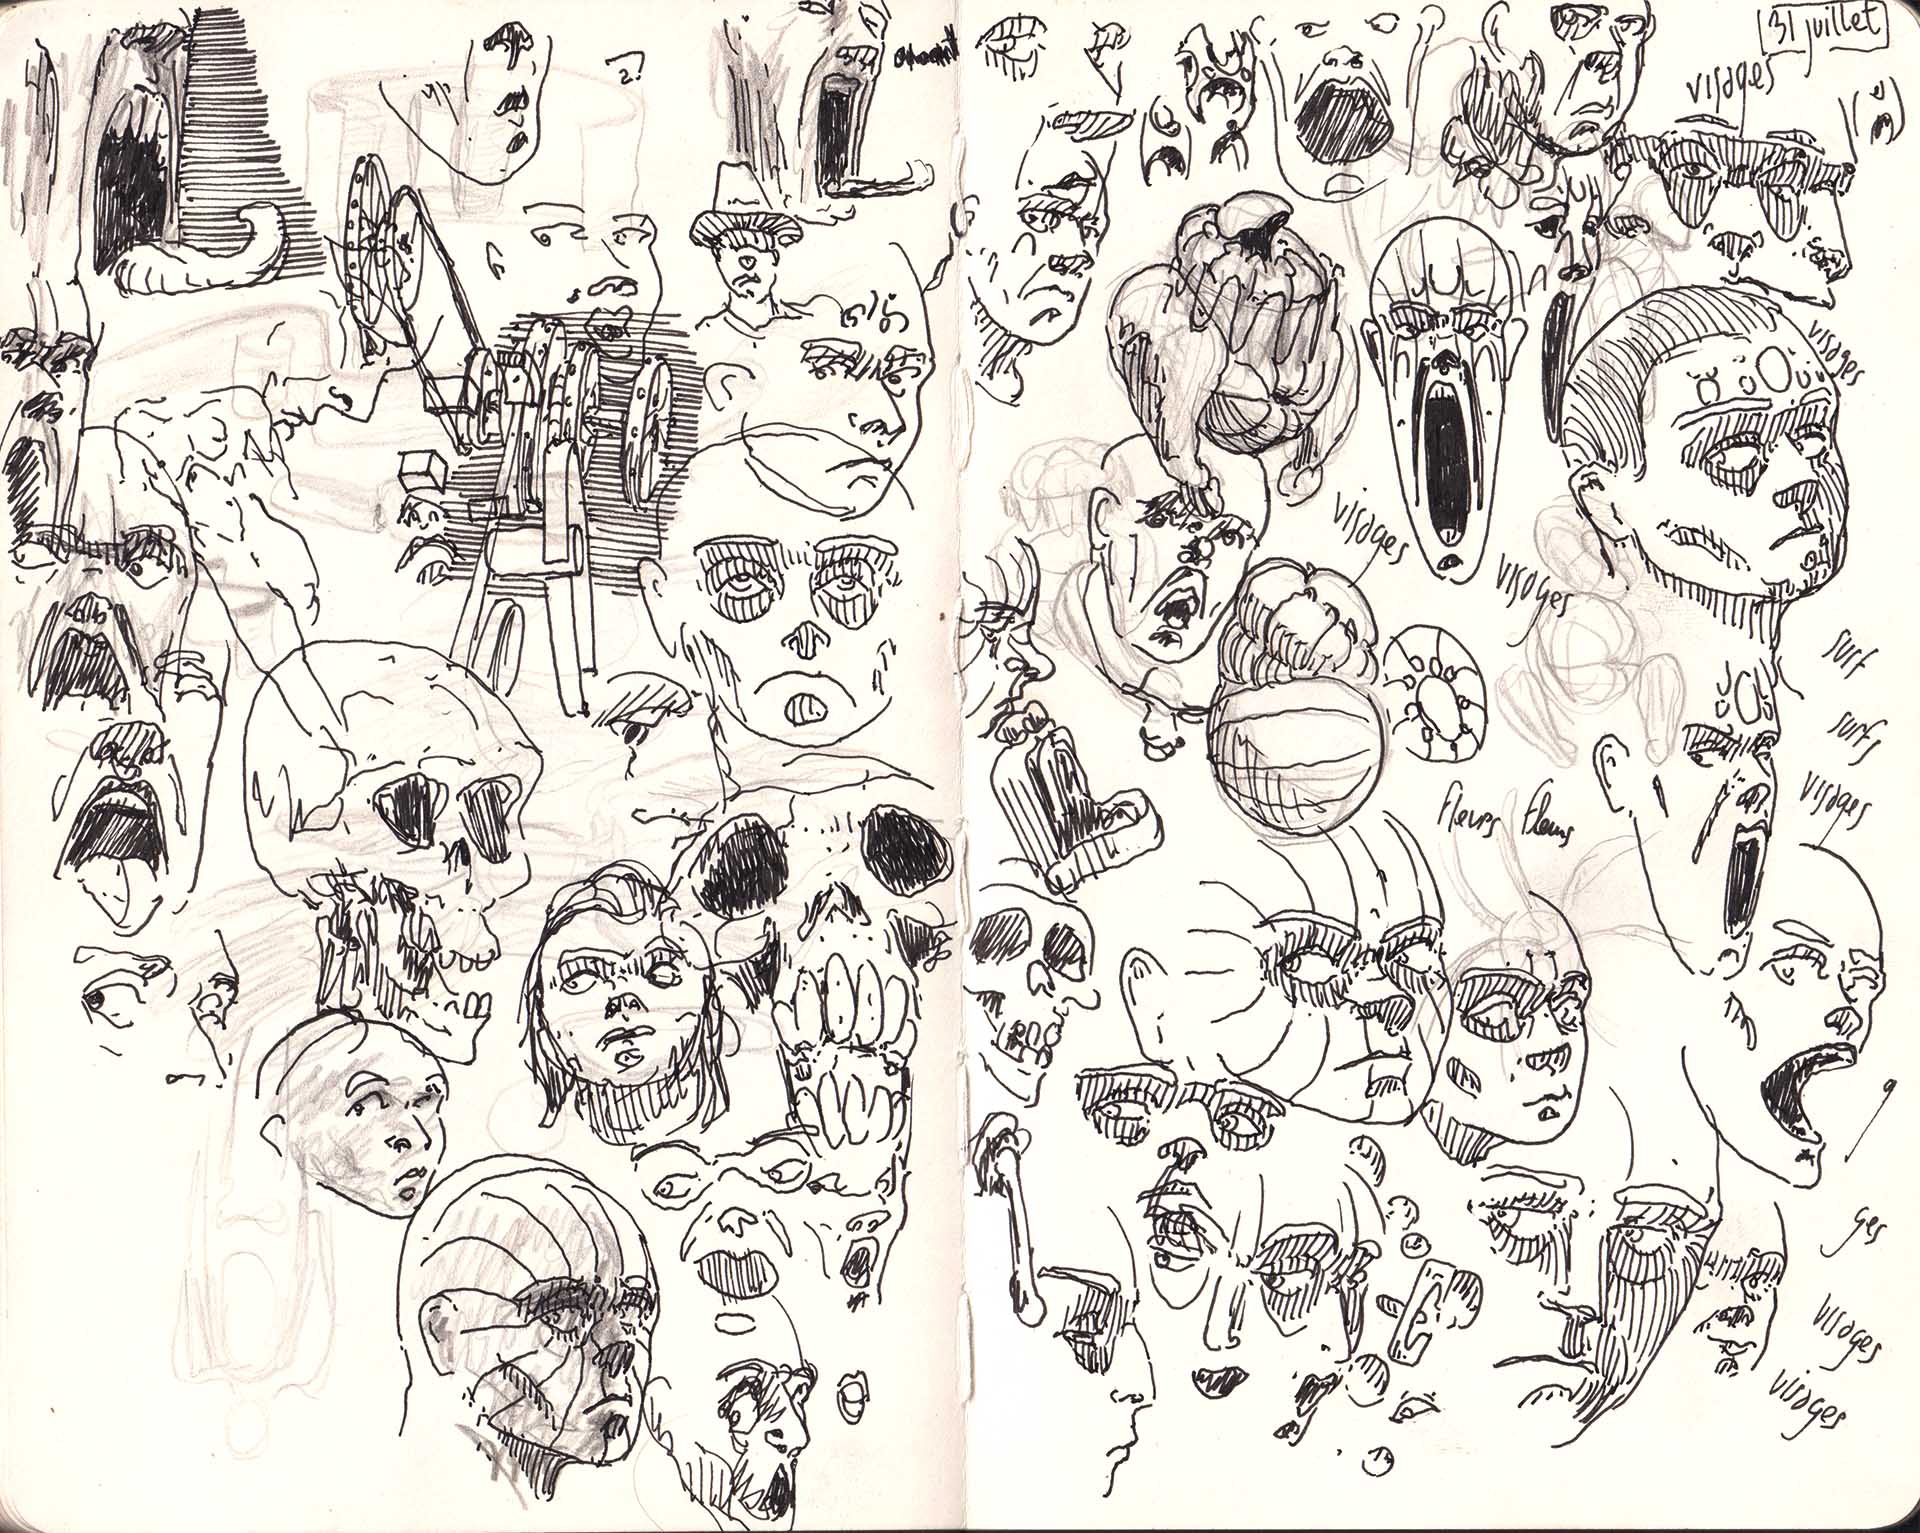 2?
31 juillet
visages
visages
visages
visages
surf
surfs
visages
fleurs fleurs
9
ges
visages
visages